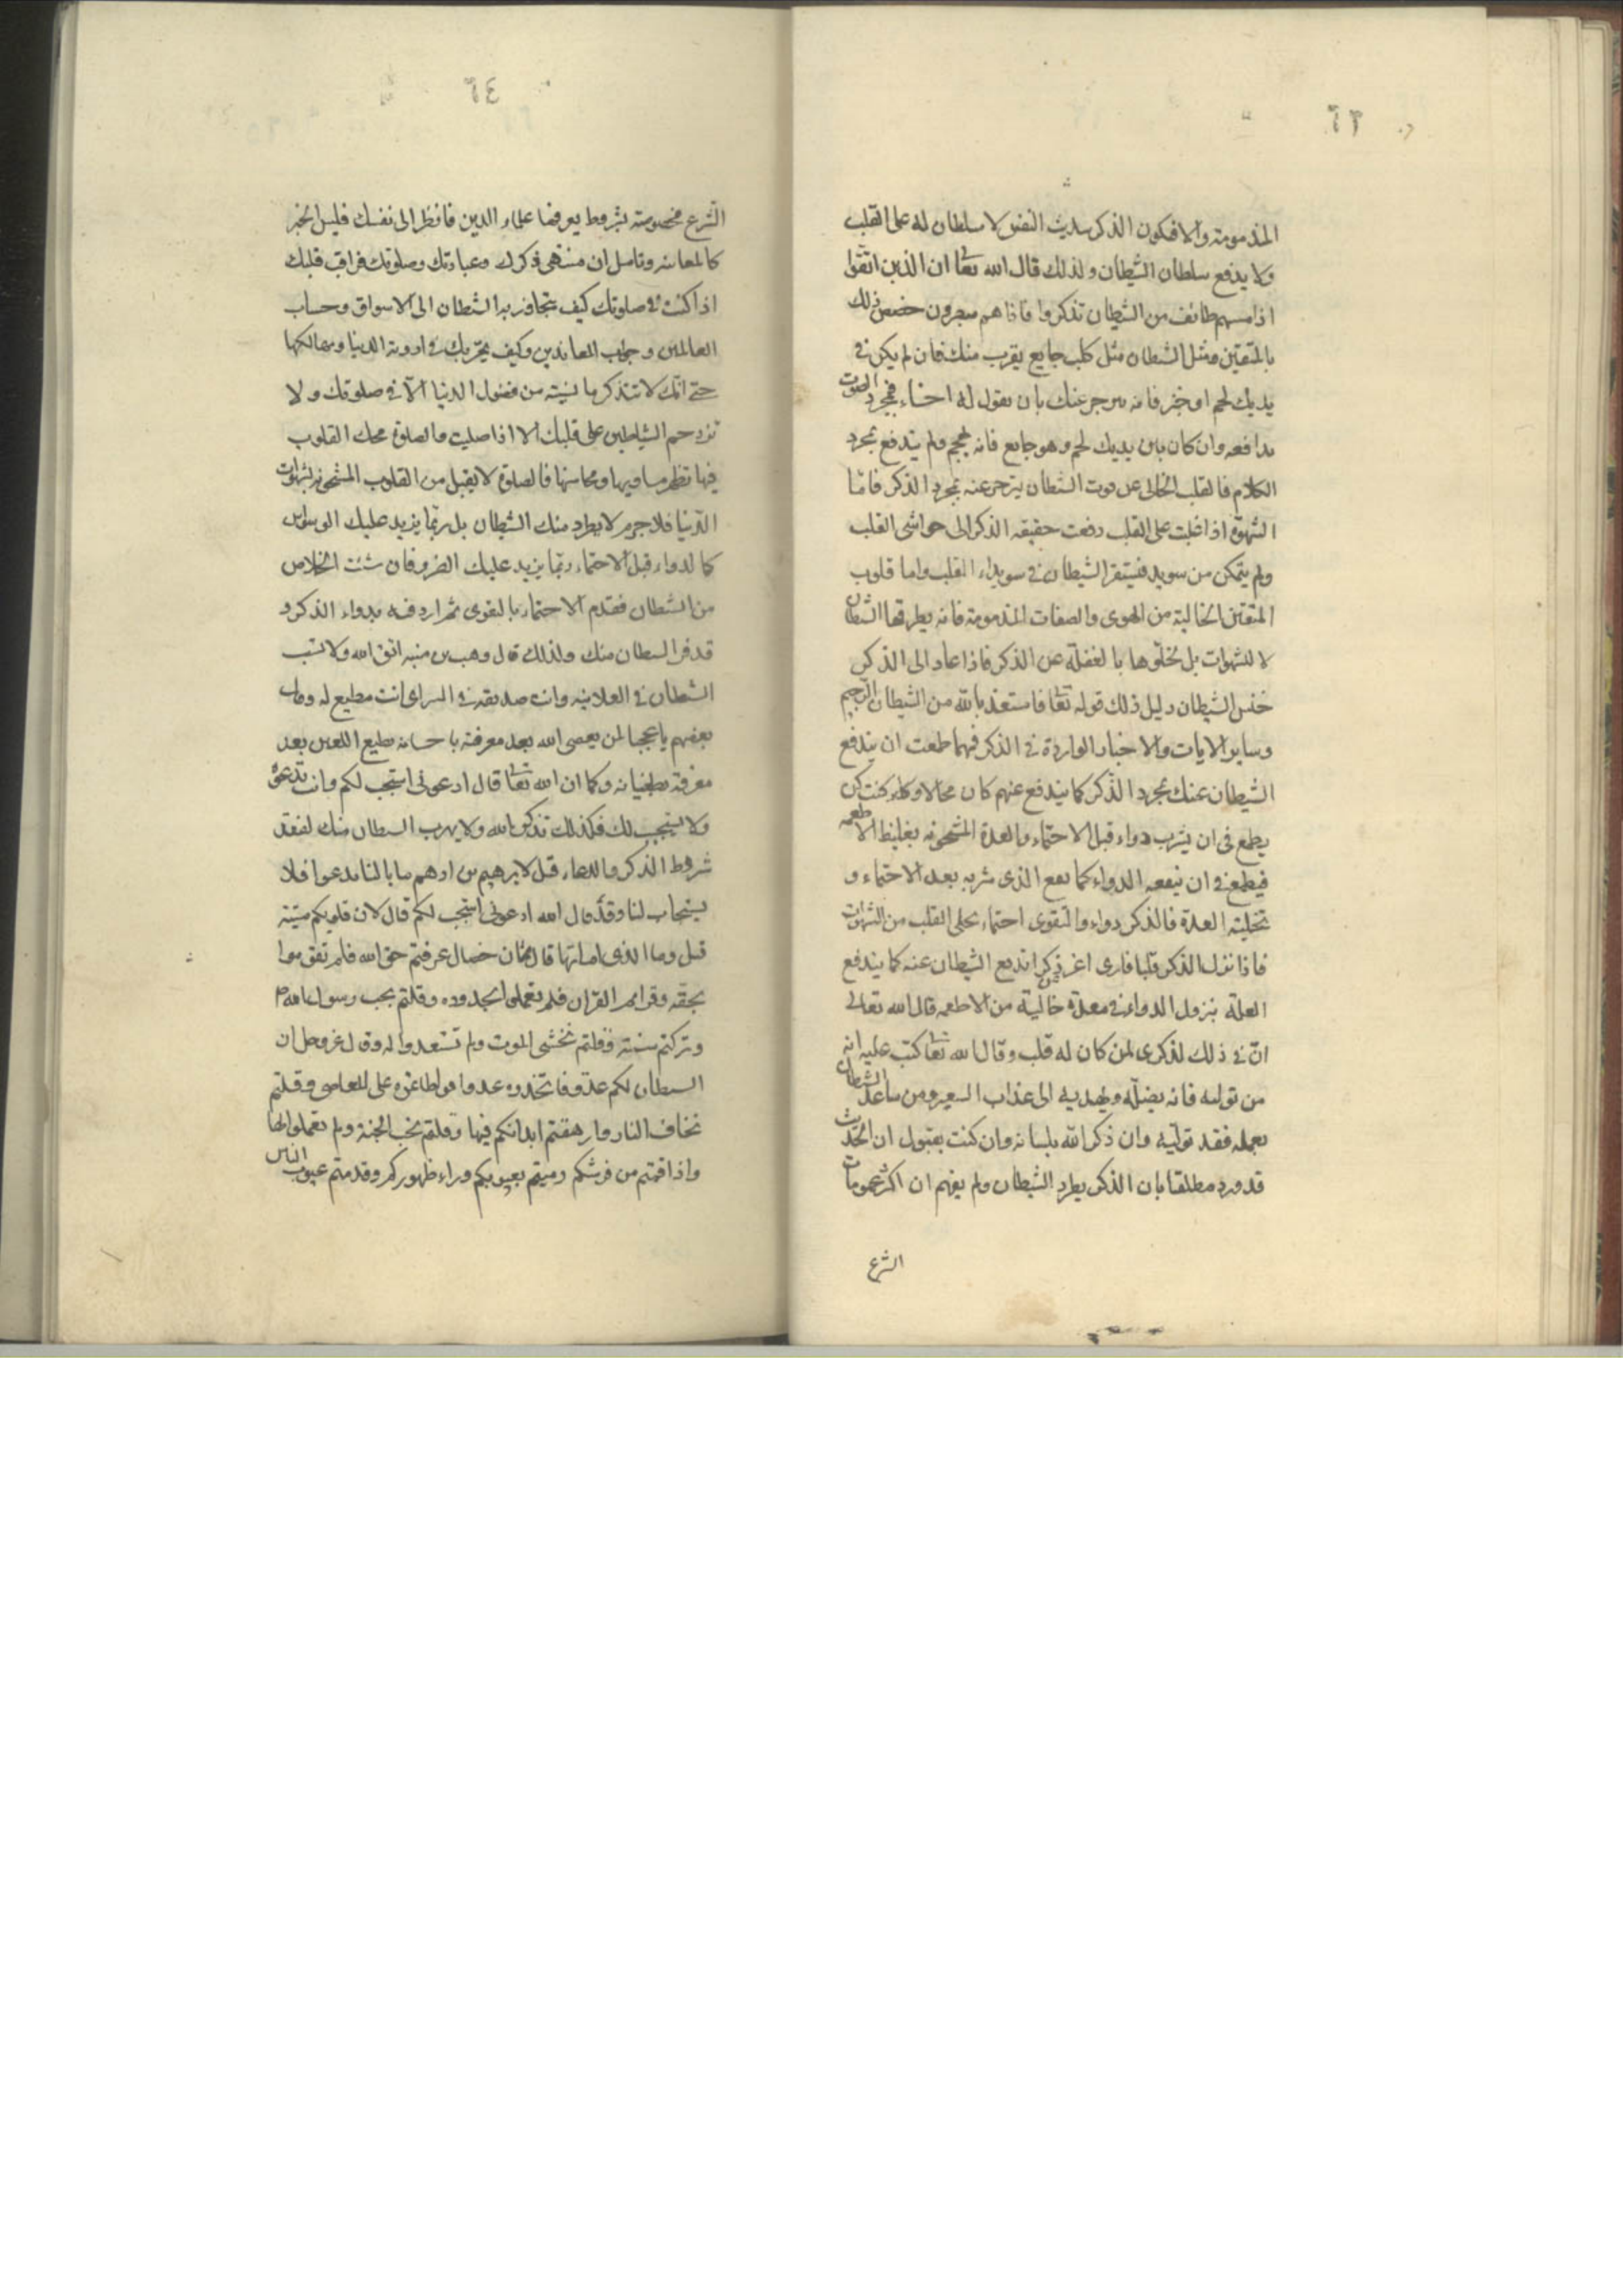 ٦٣
المذمومة والا فيكون الذكر حديث النفس لا سلطان له على القلب
ولا يدفع سلطان الشيطان ولذلك قال الله تعا ان الذين اتقوا
اذا مسهم طائف من الشيطان تذكروا فاذا هم مبصرون خصص ذلك
بالمتقين ومثل الشطان مثل كلب جايع يقرب منك فان لم يكن في
يديك لحم او خبز فانه ينزجر عنك بان تقول له اخساء فمجرد الصوت
يدافعه وان كان بين يديك لحم وهو جايع فانه يهجم ولم يندفع بمجرد
الكلام فالقلب الخالى عن قوت الشطان ينزجر عنه بمجرد الذكر فامّا
الشهوة اذا غلبت على القلب دفعت حقيقه الذكر الى حواشى القلب
ولم يتمكن من سويد فيستقر الشيطان في سويداء القلب واما قلوب
المتقين الخالية من الهوى والصفات المذمومة فانه يطرقها الشطان
لا للشهوات بل لخلّوها بالغفلة عن الذكر فاذا عاد الى الذكر
خنس الشيطان دليل ذلك قوله تعا فاستعذ بالله من الشيطان الرجيم
وساير الايات والاخبار الواردة في الذكر فمهما طمعت ان يندفع
الشيطان عنك بمجرد الذّكر كما يندفع عنهم كان محالا وكنت كمن
يطمع فى ان يشرب دواء قبل الاحتماء والمعدة المشحونه بغليظ الاطعمه
فيطمع في ان ينفعه الدواء كما نفع الذى شربه بعد الاحتماء و
تخلية المعدة فالذكر دواء والتقوى احتماء تخلى القلب من الشهوات
فاذا نزل الذكر قلبا فارغا عن غير ذكر اندفع الشيطان عنه كما يندفع
العلة بنزول الدواء في معدة خالية من الاطعمه قال الله تعالى
انّ في ذلك لذكرى لمن كان له قلب وقال الله تعا كتب عليه انه
من تولاه فانه يضلّه ويهديه الى عذاب السعير ومن ساعد الشيطان
بعمله فقد تولّيه وان ذكر الله بلسانه وان كنت تقول ان الحديث
قد ورد مطلقا بان الذكر يطرد الشيطان ولم يفهم ان اكثر عمومات
الشرع
٦٤
الشّرع مخصوصة بشروط يعرفها علماء الدين فانظر الى نفسك فليس الخبر
كالمعاينه وتامل ان منتهى ذكرك وعبادتك وصلوتك فراقب قلبك
اذا كنت في صلوتك كيف يتجاذبه الشطان الى الاسواق وحساب
العالمين وجواب المعاندين وكيف يمرّ بك في اودية الدنيا ومهالكها
حتى انّك لا تتذكر ما نسيته من فضول الدنيا الّا في صلوتك ولا
تزدحم الشياطين على قلبك الا اذا صليت والصلوة محك القلوب
فيها تظهر مساويها ومحاسنها فالصلوة لا يقبل من القلوب المشحونة بشهوات
الدّنيا فلا جرم لا يطرد منك الشيطان بل ربّما يزيد عليك الوسواس
كالدواء قبل الاحتماء ربّما يزيد عليك الضرر فان شئت الخلاص
من الشطان فقدم الاحتماء بالتقوى ثم اردفه بدواء الذكر و
قد فر الشطان منك ولذلك قال وهب بن منبه اتق الله ولا تسب
الشطان في العلانيه وانت صديقه في السر اى انت مطيع له وقال
بعضهم يا عجبا لمن يعصى الله بعد معرفته باحسانه يطيع اللعين بعد
معرفته بطغيانه وكما ان الله تعا قال ادعونى استجب لكم وانت تدعوه
ولا يستجيب لك فكذلك تذكر الله ولا يهرب الشطان منك لفقد
شروط الذكر والدعاء قيل لابرهيم بن ادهم ما بالنا ندعوا فلا
يستجاب لنا وقد قال الله ادعونى استجب لكم قال لان قلوبكم ميتة
قيل وما الذى اماتها قال ثمان خصال عرفتم حق الله فلم تقوموا
بحقه وقراتم القران فلم تعملوا بحدوده وقلتم نحب رسول الله ص
وتركتم سنته وقلتم نخشى الموت ولم تستعدوا له وقال عزوجل ان
الشطان لكم عدو فاتخذوه عدوا فواطاتموه على المعاصى وقلتم
نخاف النار وارهقتم ابدانكم فيها وقلتم نحب الجنة ولم تعملوا لها
واذا قمتم من فرشكم رميتم بعيوبكم وراء ظهوركم وقدمتم عيوب الناس